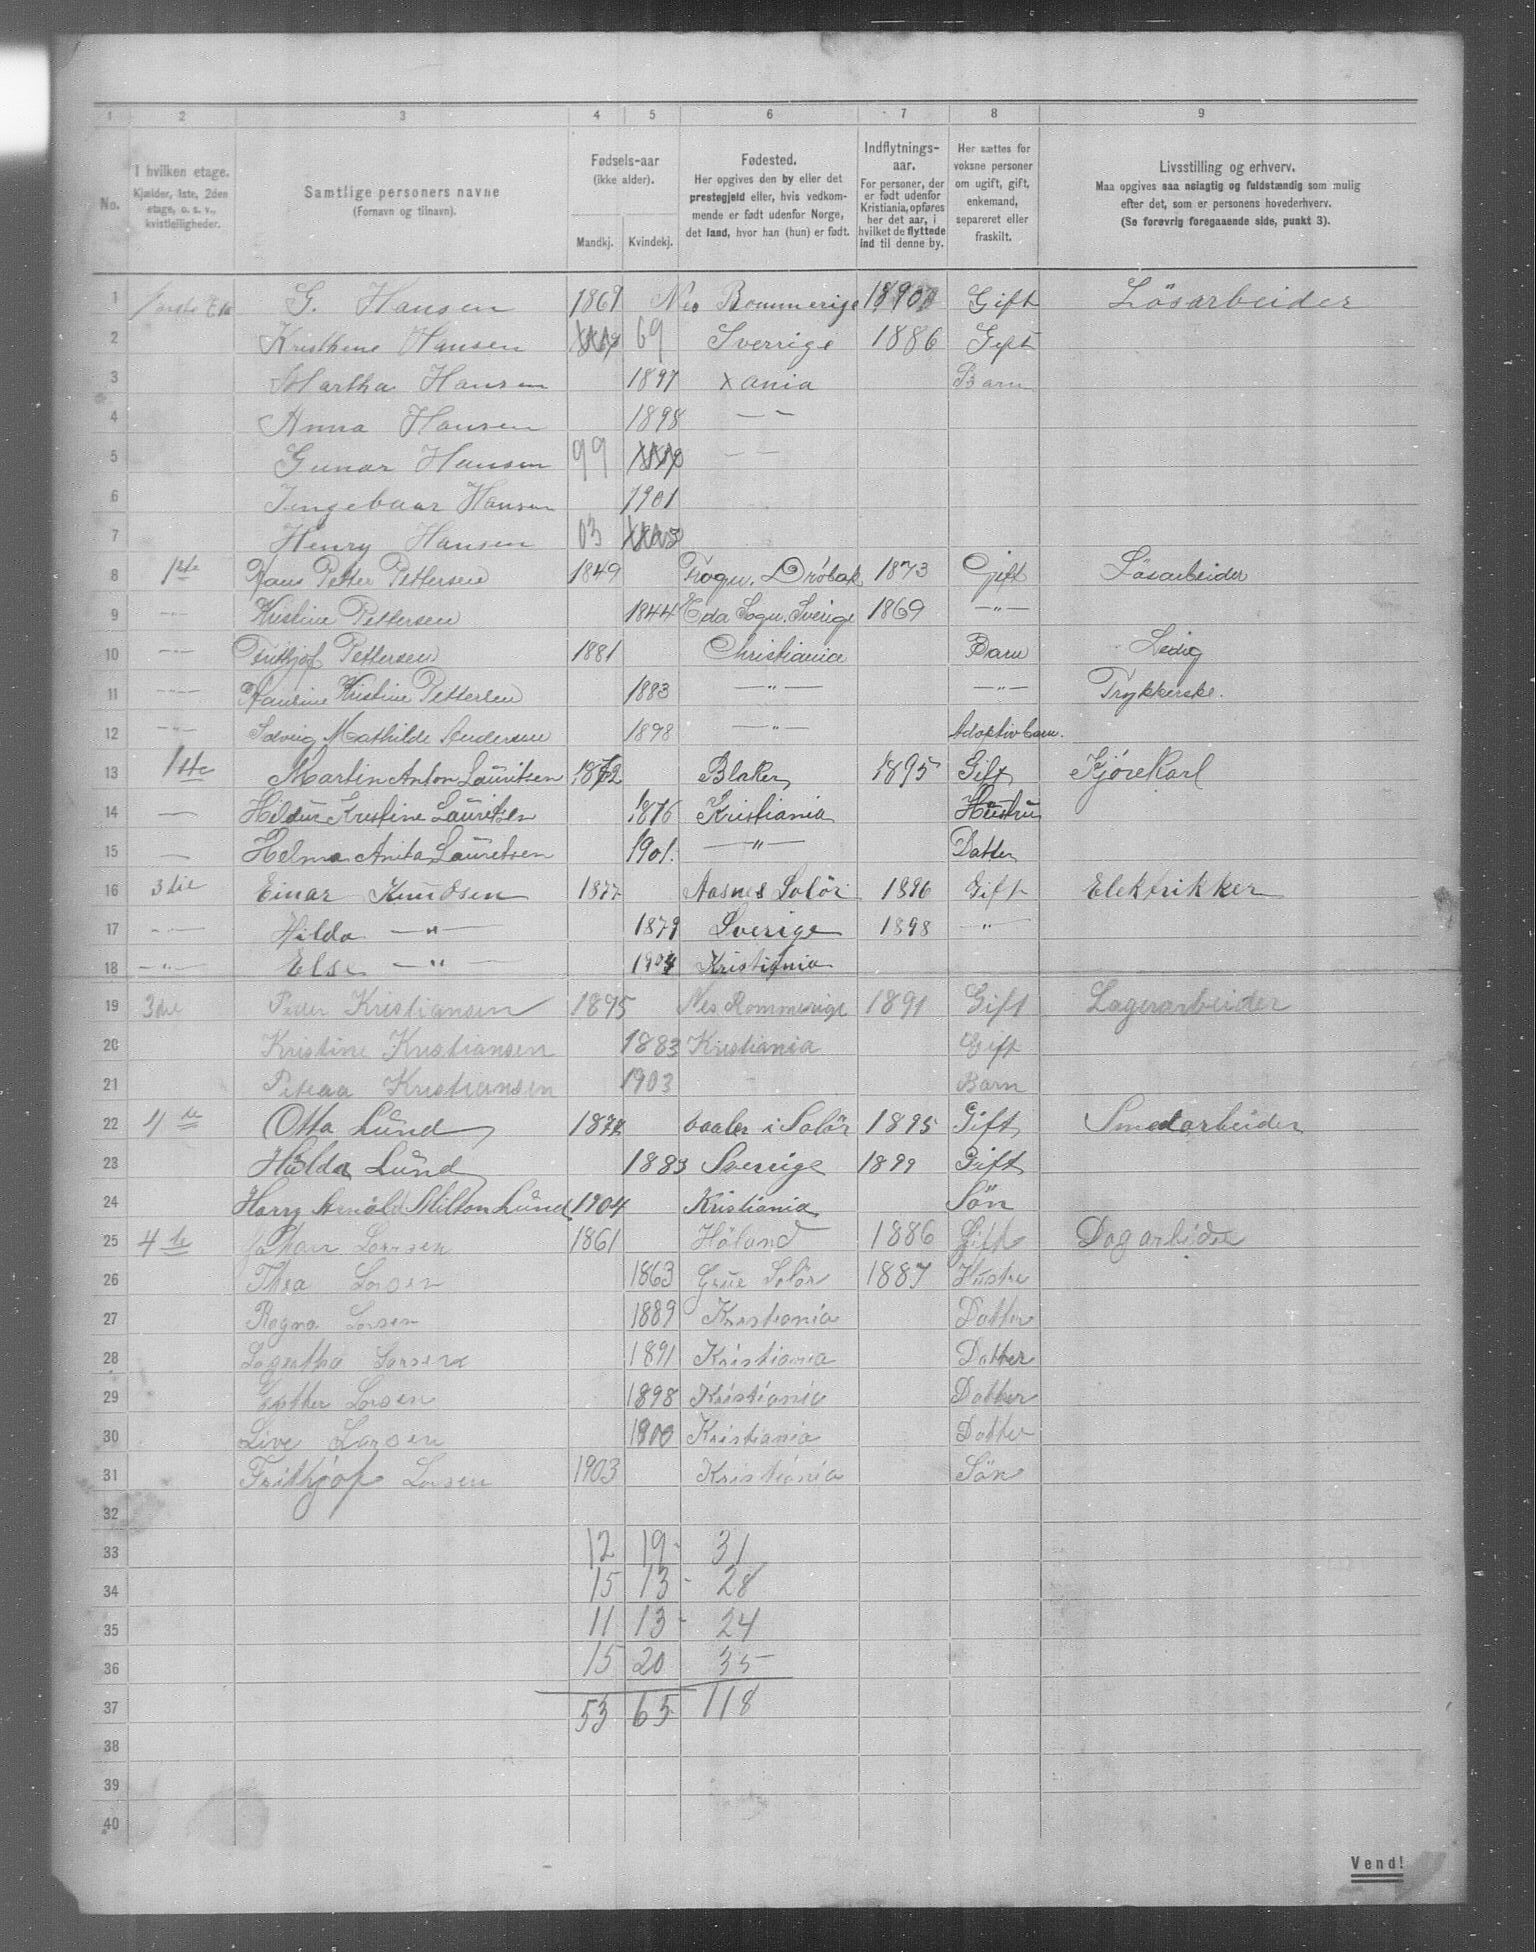 1 2 3 4 5 6 7 8 9
No.
I hvilken etage.
Kjælder, 1ste, 2den
etage, o. s. v.,
kvistleiligheder.
Samtlige personers navne
(Fornavn og tilnavn).
Fødsels-aar
(ikke alder).
Mandkj. Kvindekj.
Fødested.
Her opgives den by eller det
prestegjeld eller, hvis vedkom-
mende er født udenfor Norge,
det land, hvor han (hun) er født.
Indflytnings-
aar.
For personer, der
er født udenfor
Kristiania, opføres
her det aar, i
hvilket de flyttede
ind til denne by.
Her sættes for
voksne personer
om ugift, gift,
enkemand,
separeret eller
fraskilt.
Livsstilling og erhverv.
Maa opgives saa nøiagtig og fuldstændig som mulig
efter det, som er personens hovederhverv.
(Se forøvrig foregaaende side, punkt 3).
1 G. Hansen 1869 Nes Rommerige Gift Lösarbeider
2 Kristhine Hansen 69 Sverrige 1886 Gift
3 Martha Hansen 1897 Xania Barn
4 Anna Hansen 1898 — —
5 Gunar Hansen 99 — —
6 Ingebaar Hansen 1901
7 Henry Hansen 03
8 1ste Hans Petter Pettersen 1849 Frogn. Dröbak 1873 Gift Lösarbeider
9 —"— Kristine Pettersen 1844 Eda Sogn, Sverige 1869 —"—
10 —"— Frithjof Pettersen 1881 Christiania Barn Ledig
11 —"— Hansine Kristine Pettersen 1883 —"— —"— Trykkerske.
12 —"— Solveig Mathilde Andersen 1898 —"— Adoptivbarn.
13 1ste Martin Anton Lauritsen 1872 Blaker 1895 Gift Kjörekarl
14 — Hildur Kristine Lauritsen 1876 Kristiania Hustru
15 — Helma Anita Lauritsen 1901. —"— Datter
16 3die Einar Knudsen 1877 Aasnes Solör 1896 Gift Elektrikker
17 —"— Hilda —"— 1879 Sverige 1898 —"—
18 —"— Else —"— 1904 Kristiania
19 3die Peder Kristiansen 1875 Nes Rommerige 1891 Gift Lagerarbeider
20 Kristine Kristiansen 1883 Kristiania Gift
21 Kristiansen 1903 Barn
22 4de Otto Lund vaaler i Solör 1895 Gift Smedarbeider
23 Hilda Lund 1883 Sverrige 1899 Gift
24 Harry Arnold Milton Lund 1904 Kristiania Sön
25 4de Johan Larsen 1861 Höland 1886 Gift Dagarbeider
26 Thea Larsen 1863 Grue Solör 1887 Hustru
27 Ragna Larsen 1889 Kristiania Datter
28 Lagertha Larsen 1891 Kristiania Datter
29 Esther Larsen 1898 Kristiania Datter
30 Live Larsen 1900 Kristiania Datter
31 Frithjof Larsen 1903 Kristiania Sön
32
33 12 19 - 31
34 15 13 - 28
35 11 13 - 24
36 15 20 35
37 53 65 118
38
39
40
Vend!